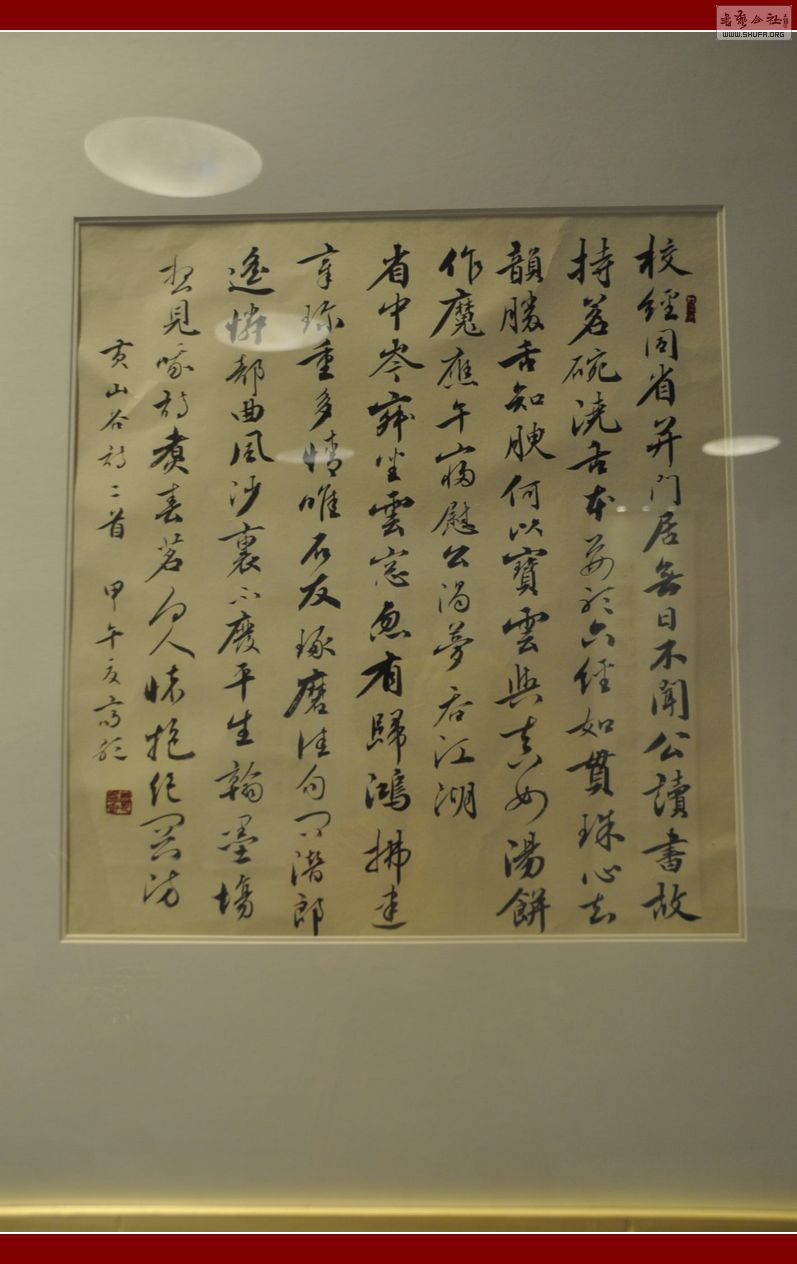 校經同省并門居無日不聞公讀書故
持茗碗澆舌本要聽六經如貫珠心知
韻勝舌知腴何以寶雲與真如湯餅
作魔應午寢慰公渴夢吞江湖
省中岑寂坐雲窓忽有歸鴻拂建
章珍重多情唯石友琢磨佳句問潛郎
遙憐部曲風沙裏不廢平生翰墨場
想見哦詩煑春茗向人懷抱絕關防
黃山谷詩二首 甲午夏
書藝公社
WWW.SHUFA.ORG